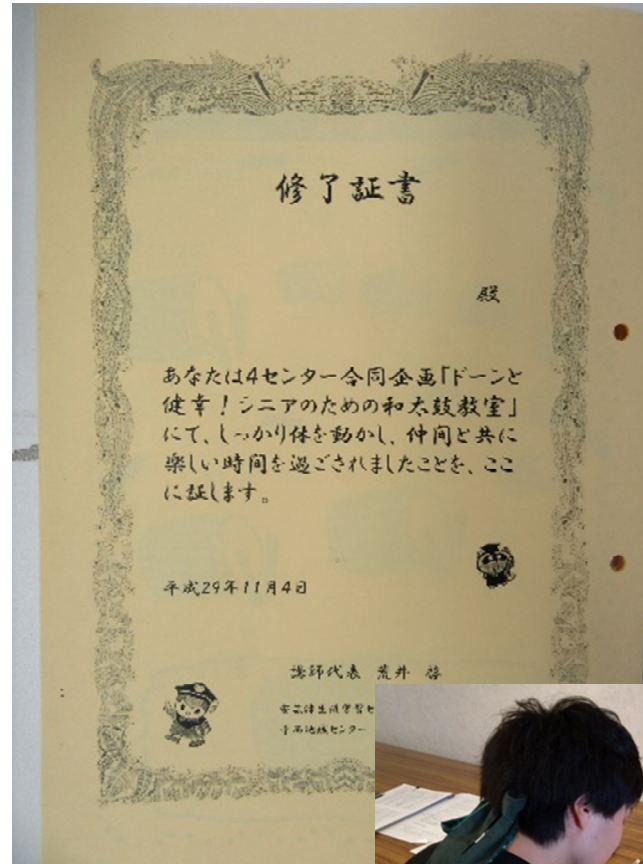 修了証書
殿
あなたは4センター合同企画「ドーンと
健幸！シニアのための和太鼓教室」
にて、しっかり体を動かし、仲間と共に
楽しい時間を過ごされましたことを、ここ
に証します。
平成29年11月4日
講師代表 荒井 啓
安芸津生涯学習セ
地域センター